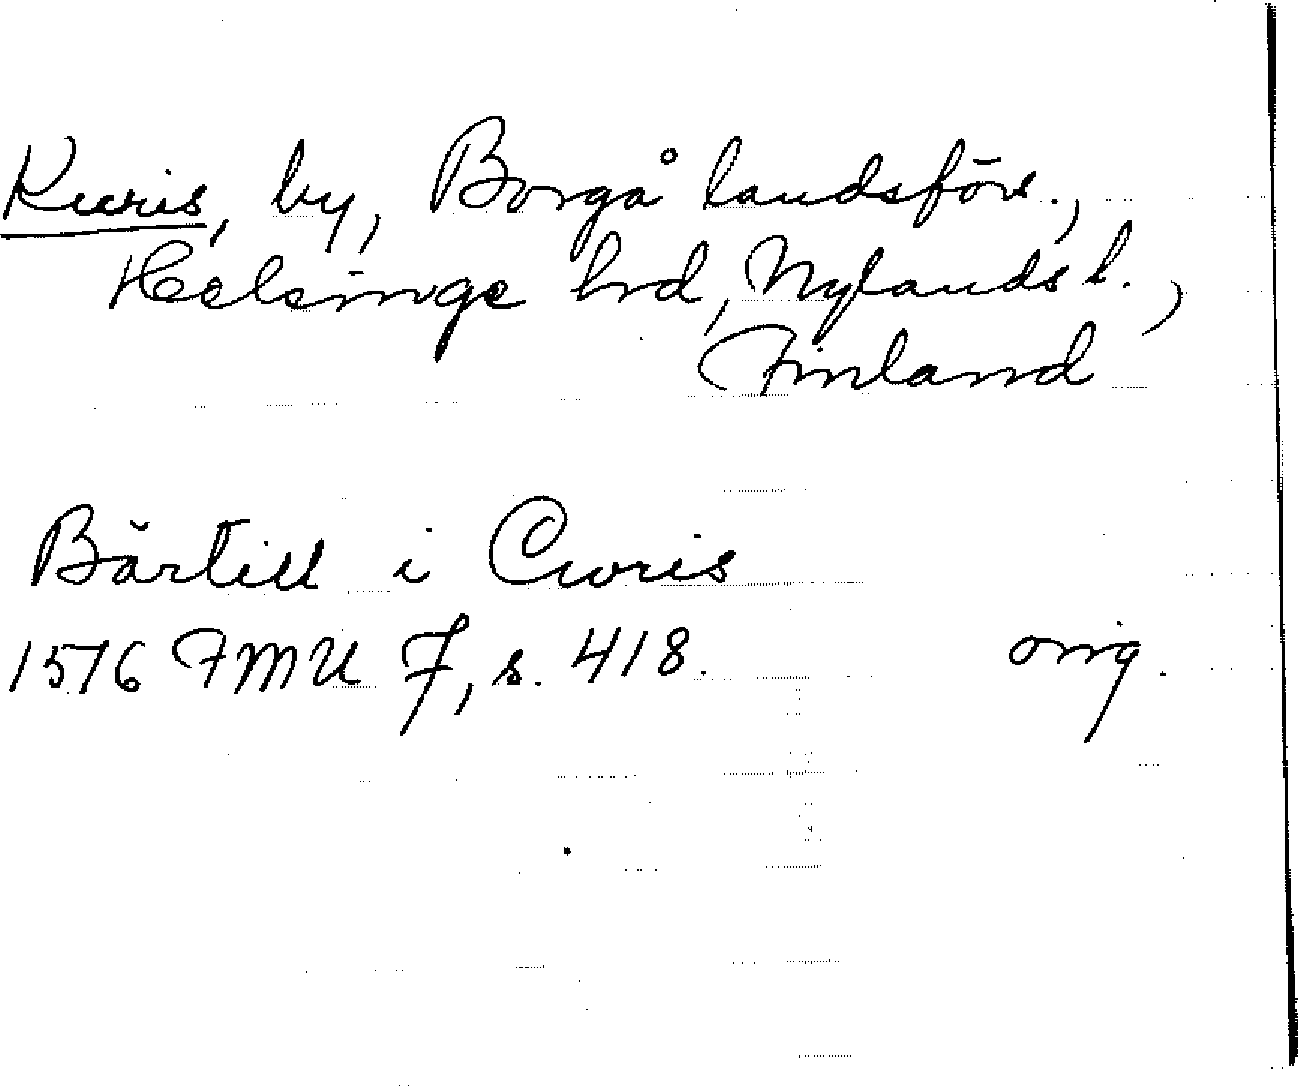 Kuris, by, Borgå landsförs.,
Helsinge hrd, Nylands l.,
Finland
Bärtill i Cwris
1576 FMU F, s. 418. orig.